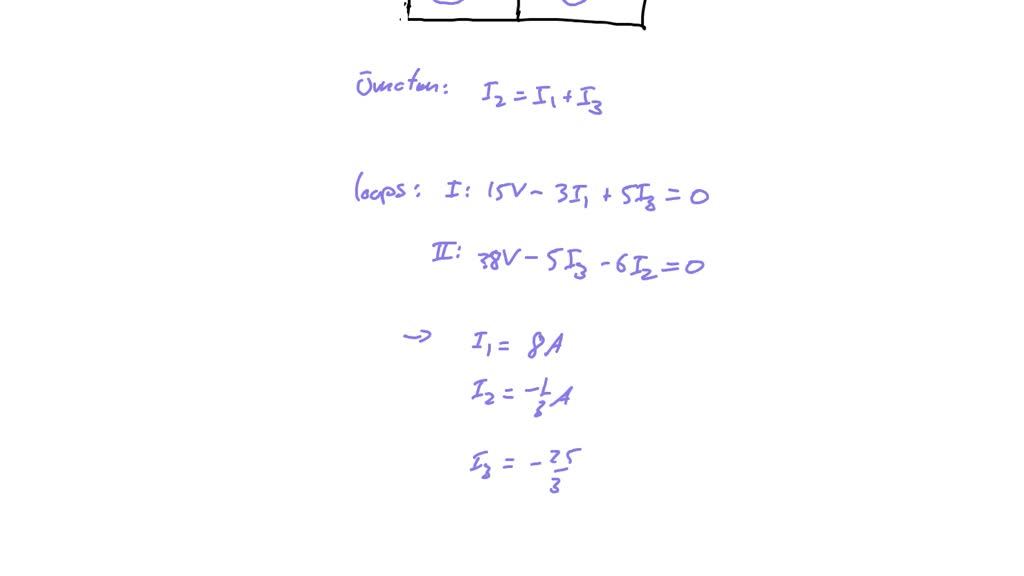 Junction: I₂ = I₁ + I₃
loops: I: 15V - 3I₁ + 5I₃ = 0
II: 38V - 5I₃ - 6I₂ = 0
→ I₁ = 8A
I₂ = -1/3 A
I₃ = - 25/3